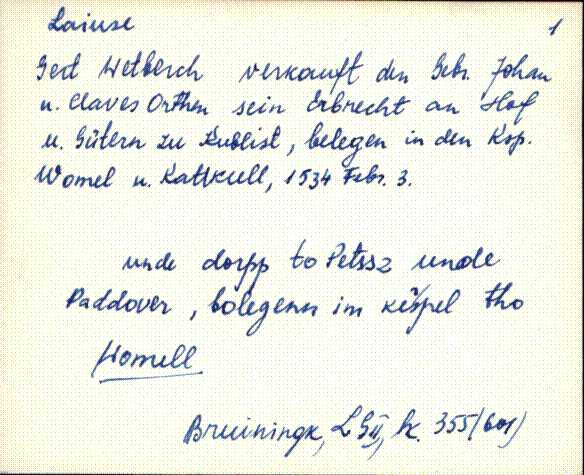 Laiuse 1
Gert Wetberch verkauft den Gebr. Johan
u. Claves Orthen sein Erbrecht an Hof
u. Gütern zu Kublist, belegen in den Ksp.
Womel u. Katkull, 1534 Febr. 3.
unde dorpp to Petssz unde
Paddover, belegenn im kespel tho
Womell
Bruiningk, LGII, lk. 355 (601)